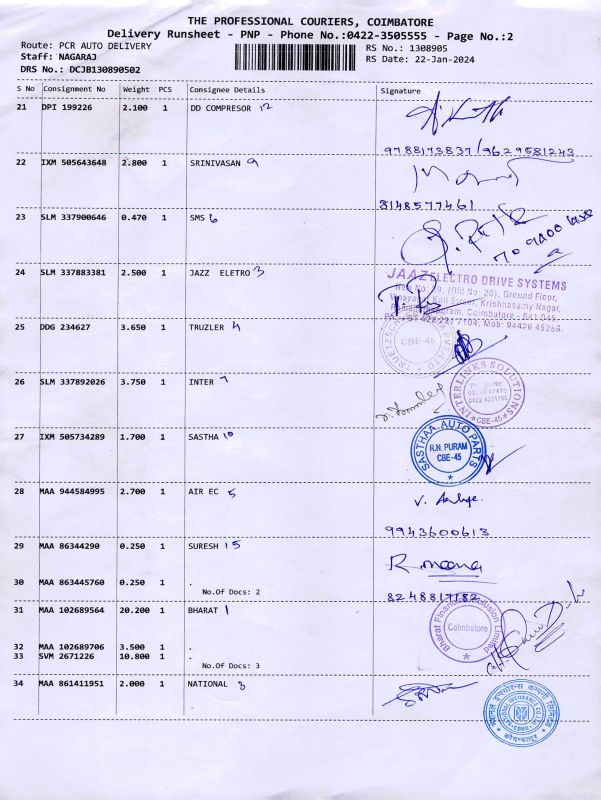 THE PROFESSIONAL COURIERS, COIMBATORE
Delivery Runsheet - PNP - Phone No.:0422-3505555 - Page No.:2
Route: PCR AUTO DELIVERY
RS No.: 1308905
Staff: NAGARAJ
RS Date: 22-Jan-2024
DRS No.: DCJB130890502
S No Consignment No Weight PCS Consignee Details Signature
21 DPI 199226 2.100 1 DD COMPRESOR 12
9788173837/9629581243
22 IXM 505643648 2.800 1 SRINIVASAN 9
8148577461
23 SLM 337900646 0.470 1 SMS 6
24 SLM 337883381 2.500 1 JAZZ ELETRO 3
JAAZ ELECTRO DRIVE SYSTEMS
(Old No: 20), Ground Floor,
Street, Krishnasamy Nagar,
Coimbatore - 641 045
Mob: 94426 45286.
25 DDG 234627 3.650 1 TRUZLER 4
CBE-45
26 SLM 337892026 3.750 1 INTER 7
INTERLINKS SOLUTIONS
CBE-45
27 IXM 505734289 1.700 1 SASTHA 10
SASTHAA AUTO PARTS
R.N. PURAM
CBE-45
28 MAA 944584995 2.700 1 AIR EC 5
9943600613
29 MAA 86344290 0.250 1 SURESH 15
30 MAA 863445760 0.250 1 .
No.Of Docs: 2
8248817182
31 MAA 102689564 20.200 1 BHARAT 1
Bharat Financial Inclusion Limited
Coimbatore
32 MAA 102689706 3.500 1 .
33 SVM 2671226 10.800 1 .
No.Of Docs: 3
34 MAA 861411951 2.000 1 NATIONAL 3
नेशनल इन्श्योरेन्स कम्पनी लिमिटेड
कोयम्बत्तूर